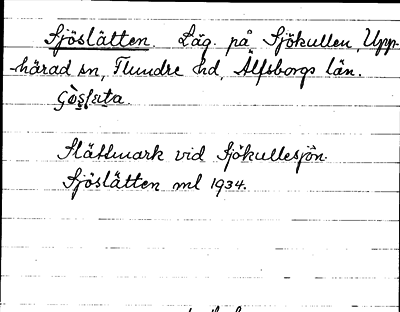 Sjöslätten. Läg. på Sjökullen, Upp-
härad sn, Flundre hd, Älfsborgs län.
Slättmark vid Sjökullesjön.
Sjöslätten ml 1934.